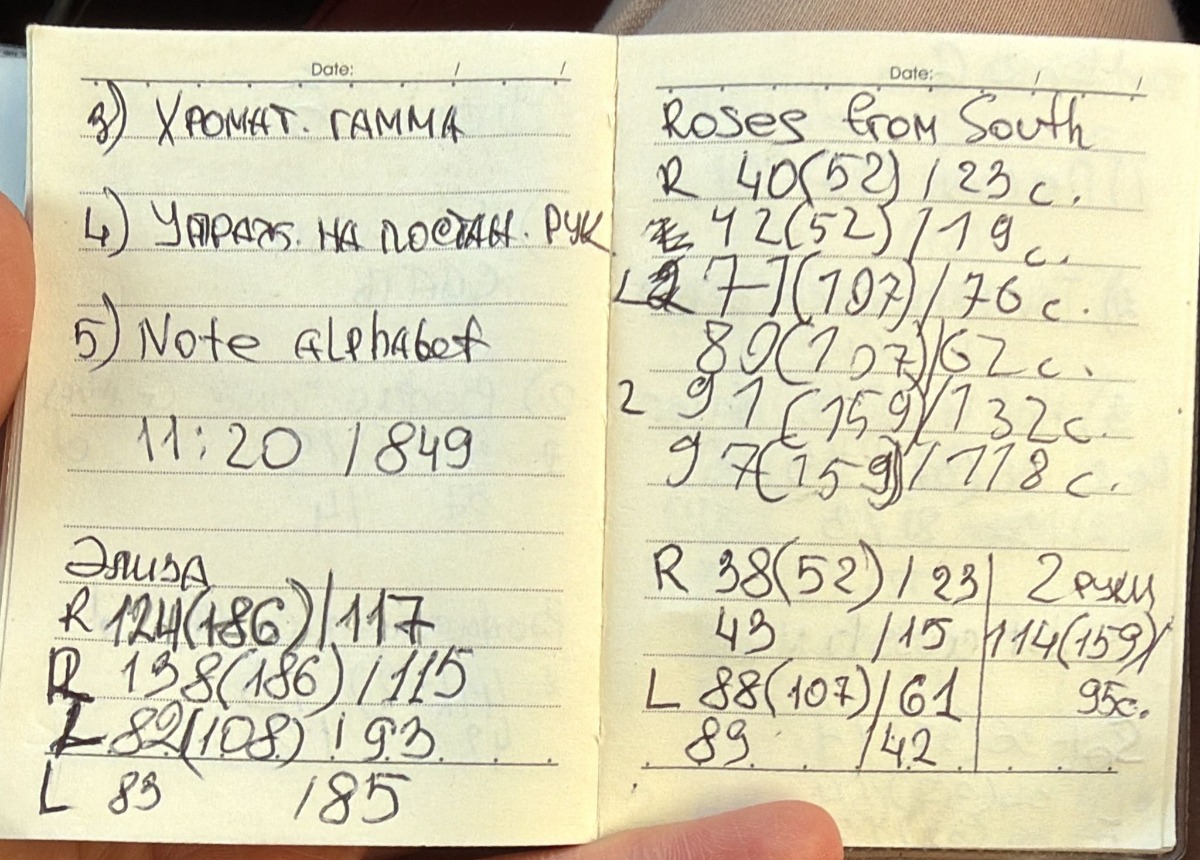 Date: / /
3) Хромат. гамма
4) Упраж. на постан. рук
5) Note alphabet
11:20 / 849
Элиза
R 124(186)/117
R 138(186)/115
L 82(108)/93
L 83 /85
Date: / /
Roses from South
R 40(52)/23 с.
42(52)/19 с.
L 77(107)/76 с.
80(107)/62 с.
2 91(159)/132 с.
97(159)/118 с.
R 38(52)/23 | 2 руки
43 /15 | 114(159)/
L 88(107)/61 | 95с.
89 /42